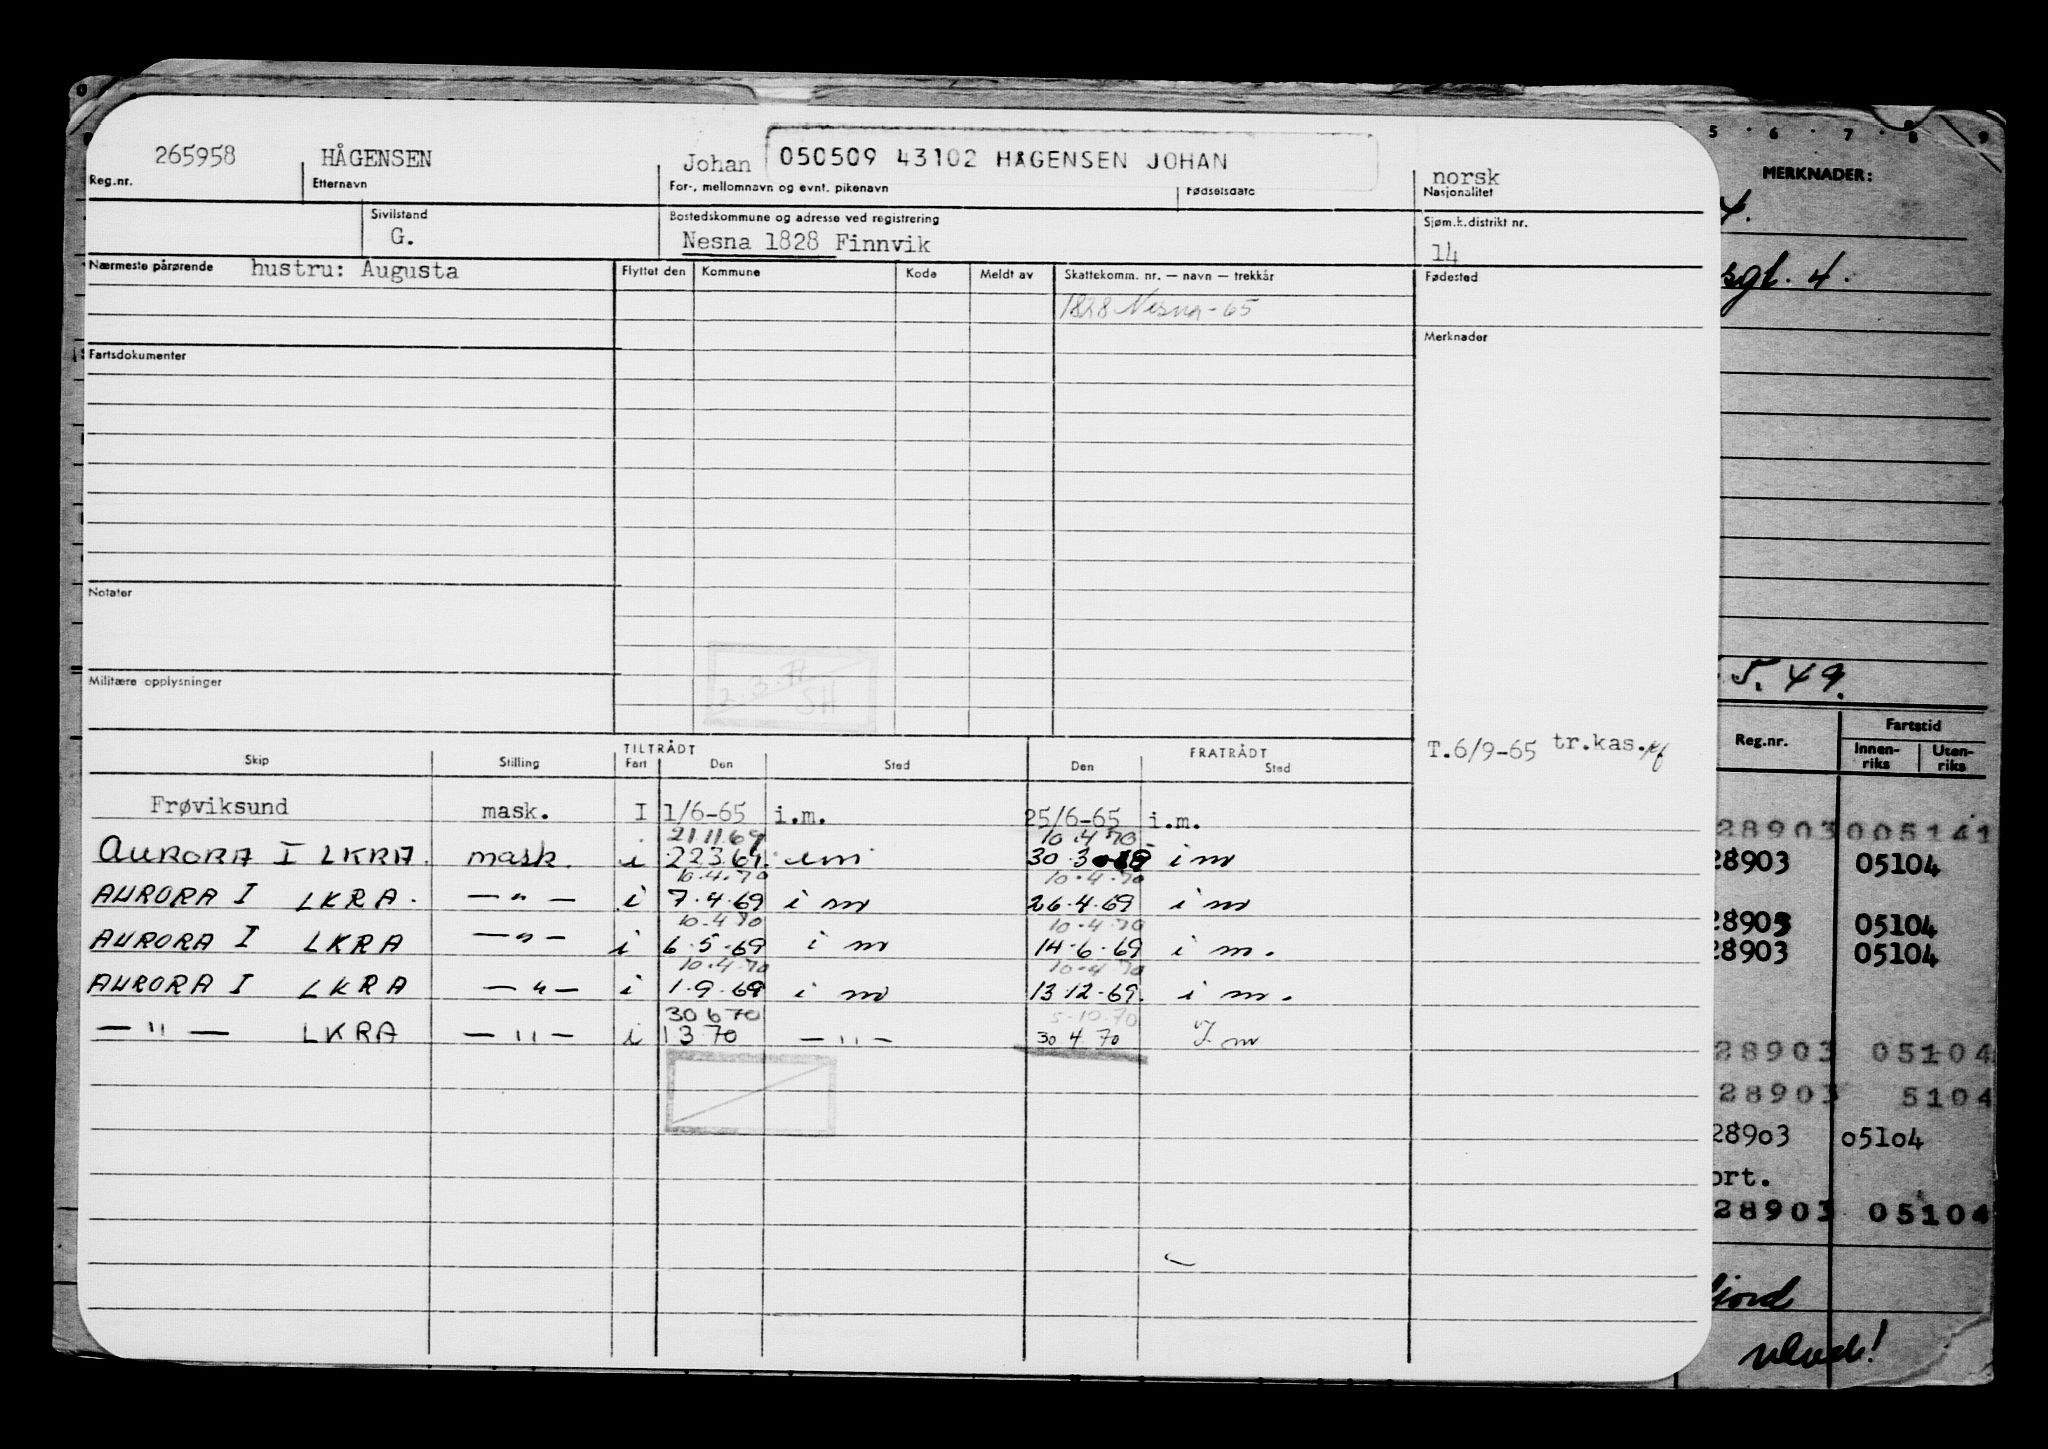 265958 HÅGENSEN Johan 050509 43102 HÅGENSEN JOHAN norsk
Reg.nr. Etternavn For-, mellomnavn og evnt. pikenavn Fødselsdato Nasjonalitet
Sivilstand Bostedskommune og adresse ved registrering Sjøm.k.distrikt nr.
G. Nesna 1828 Finnvik 14
Nærmeste pårørende hustru: Augusta Flyttet den Kommune Kode Meldt av Skattekomm. nr. — navn — trekkår Fødested
1828 Nesna - 65
Fartsdokumenter Merknader
Notater
Militære opplysninger
2.3.71
SH
TILTRÅDT FRATRÅDT
Skip Stilling Fart Den Sted Den Sted
T.6/9-65 tr.kas.
Frøviksund mask. I 1/6-65 i.m. 25/6-65 i.m.
21 11 69 10.4 70
AURORA I LKRA. mask. i 22369. im 30.3 69 i m
10.4.70 10.4.70
AURORA I LKRA. — " — i 7.4.69 i m 26.4.69 i m
10.4 70 10.4.70
AURORA I LKRA — " — i 6.5.69 i m 14.6.69 i m.
10.4.70 10.4 70
AURORA I LKRA — " — i 1.9.69 i m 13 12.69. i m.
30 6 70 5.10.70
— " — LKRA — " — i 1 3 70 — " — 30 4 70 I m
5 6 7 8 9
MERKNADER:
4.
sgt. 4.
5. 49.
Reg.nr. Fartstid
Innen-riks Uten-riks
28903 005141
28903 05104
28903 05104
28903 05104
28903 05104
28903 5104
28903 05104
ort.
28903 05104
fjord